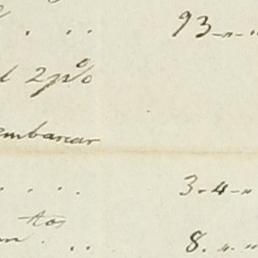 93 - " - "
2 p%
embarcar
3 - 4 - "
tos
8. " "